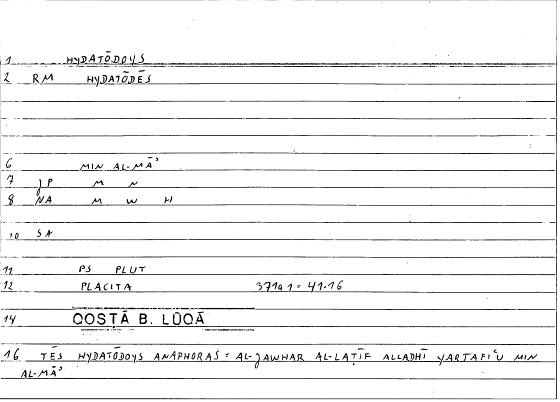 1 HYDATŌDOYS
2 RM HYDATŌDĒS
6 MIN AL-MĀʾ
7 JP M N
8 NA M W H
10 SA
11 PS PLUT
12 PLACITA 371a1 = 41.16
14 QOSṬĀ B. LŪQĀ
16 TĒS HYDATŌDOYS ANAPHORAS = AL-JAWHAR AL-LAṬĪF ALLADHĪ YARTAFIʿU MIN
AL-MĀʾ